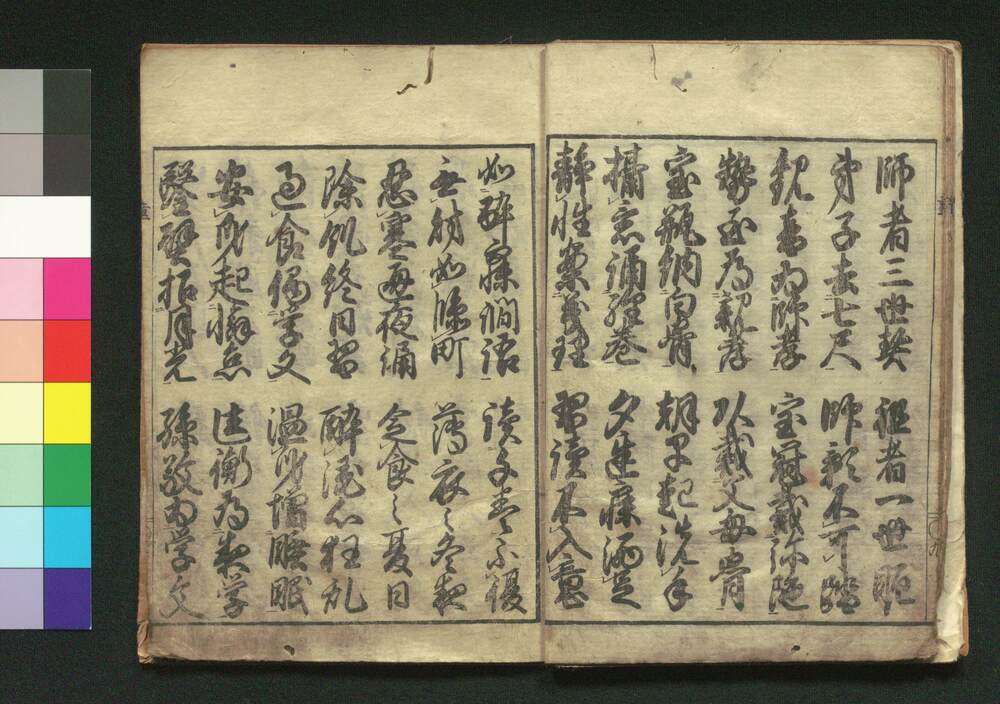 師者三世契　祖者一世昵
弟子去七尺　師影不可踏
観音為師孝　宝冠戴弥陀
勢至為親孝　以戴父母骨
宝瓶納白骨　朝早起洗手
攝意誦経巻　夕遅寐洒足
静性案義理　習読不入意
如酔寐讇語　読千巻不復
無財如臨町　薄衣之冬夜
忍寒通夜誦　乏食之夏日
除飢終日習　酔酒心狂乱
過食倦学文　温身増睡眠
安身起懈怠　匡衡為夜学
鑿壁招月光　孫敬為学文